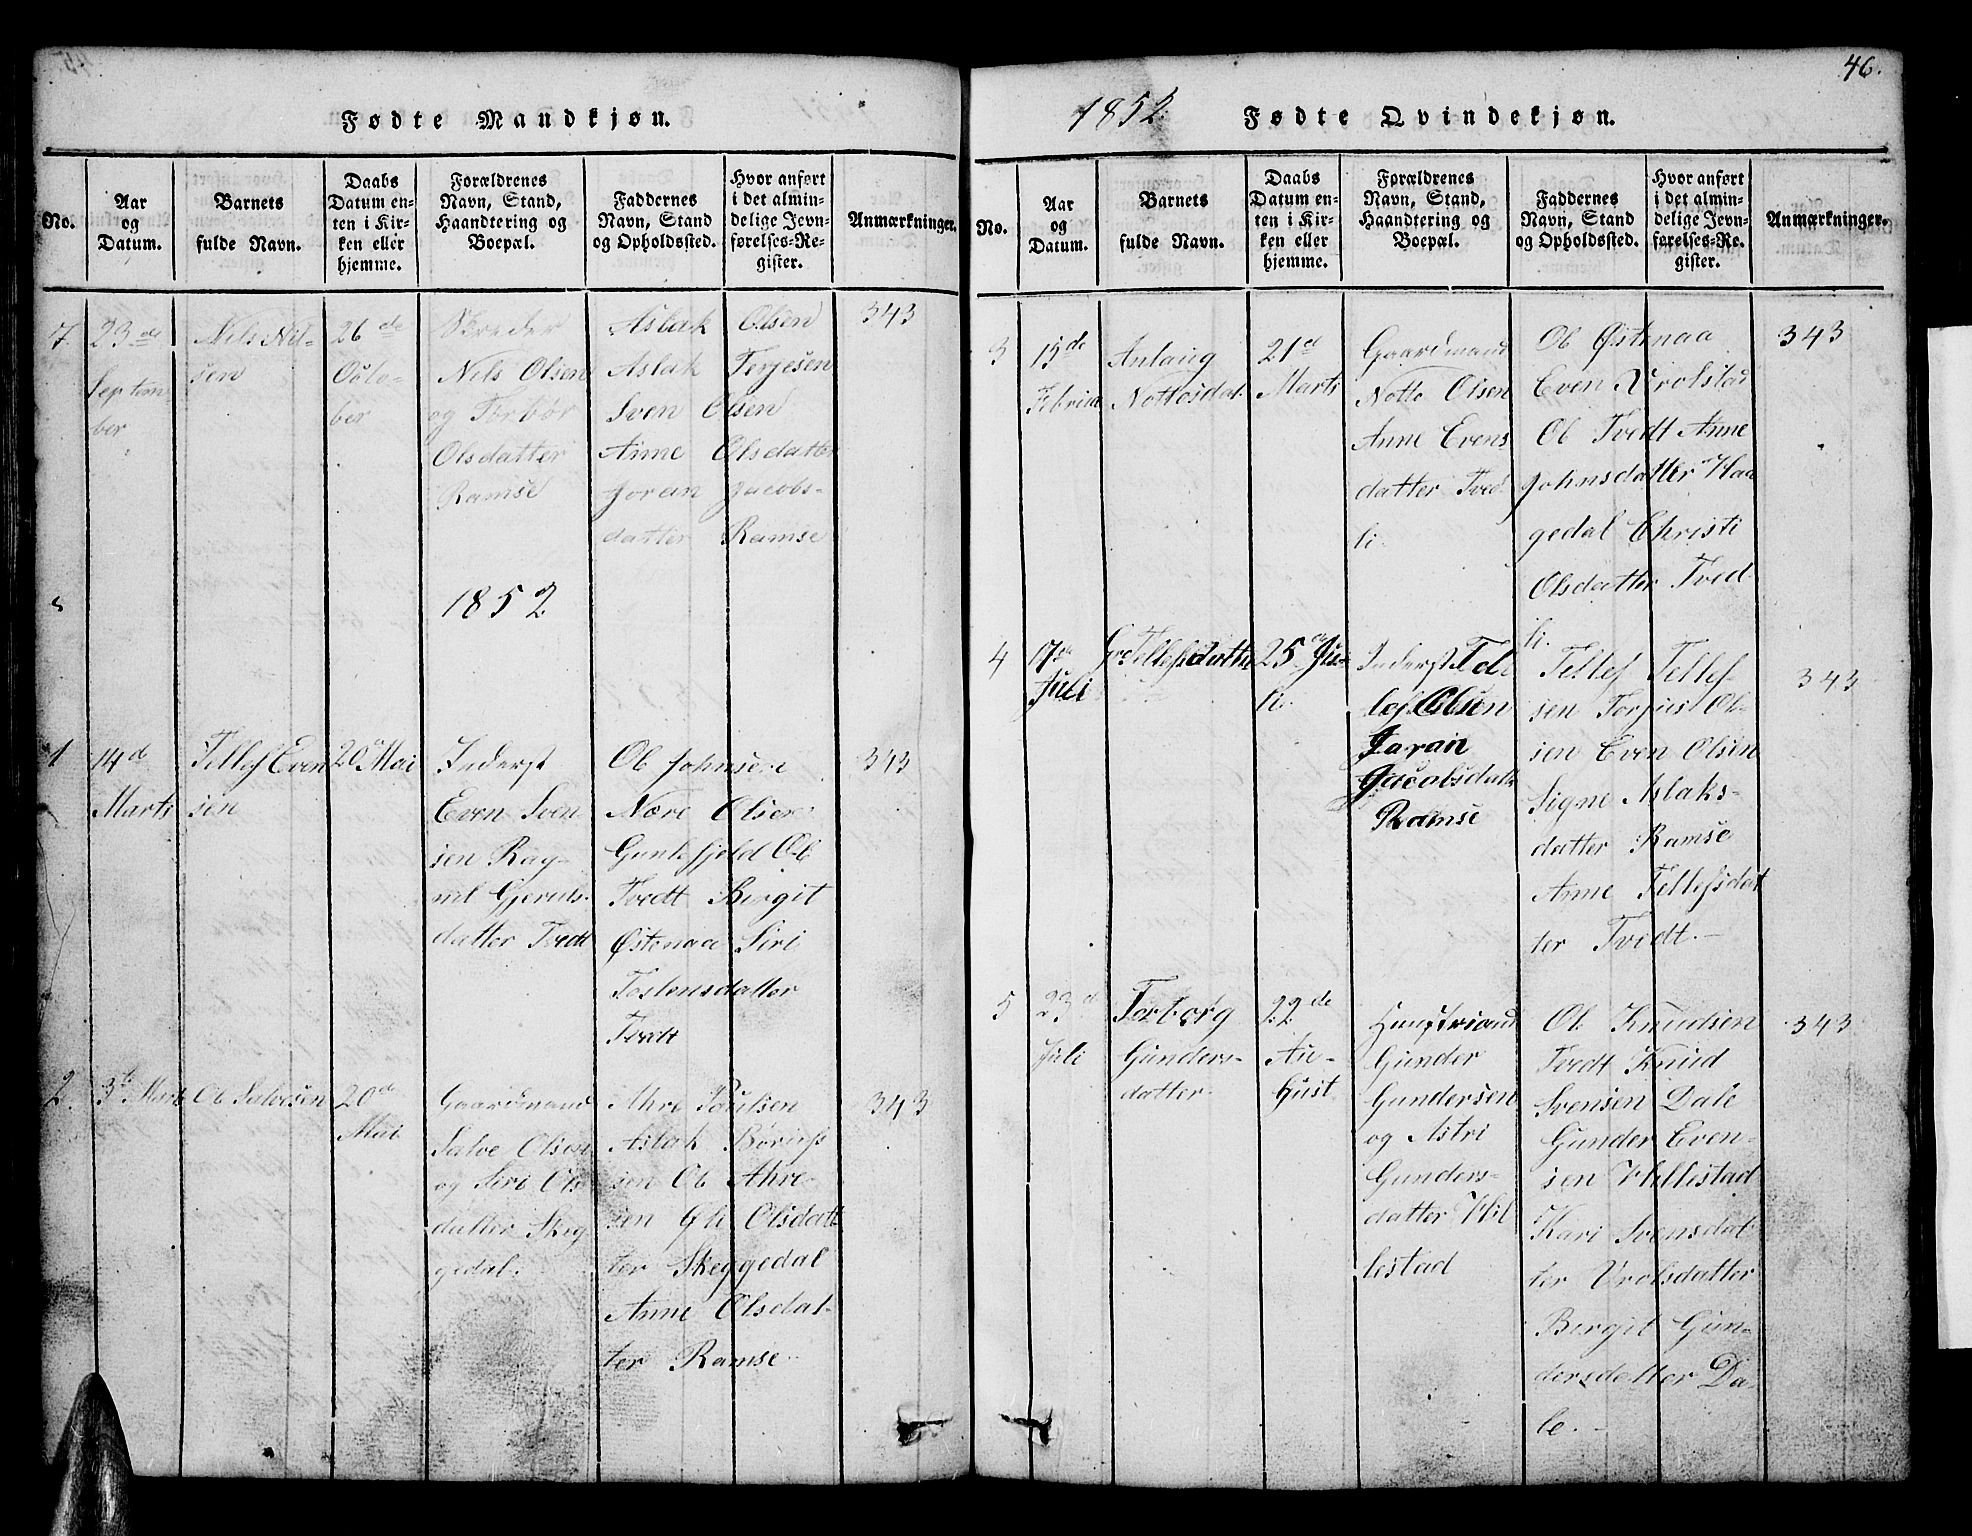 46.
Fødte Mandkjøn.
No.
Aar
og
Datum.
Barnets
fulde Navn.
Daabs
Datum en-
ten i Kir-
ken eller
hjemme.
Forældrenes
Navn, Stand,
Haandtering og
Boepæl.
Faddernes
Navn, Stand
og Opholdssted.
Hvor anført
i det almin-
delige Jevn-
førelses-Re-
gister.
Anmærkninger.
7.
23de
Septem
ber
Nils Nil-
sen
26de
Octo-
ber
Nils Olsen
og Torbør
Olsdatter
Ramse
Aslak Olsen
Aslak Terjesen
Sven Olsen
Anne Olsdatter
Joran Jacobs-
datter Ramse
343
1852
1
14d
Marts
Tellef Even
sen
20 Mai
Inderst
Even Sven
sen Rag-
nil Gjeruls-
datter Tvedt
Ol Johnsen
Nære Olsen
Guntefjeld Ol
Tvedt Birgit
Østenaa Siri
Tostensdatter
Tvedt
343
2.
3te Marts
Ol Salvesen
20de
Mai
Gaardmand
Salve Olsen
og Siri Ols
datter Skeg
gedal.
Ahre Paulsen
Aslak Børufs
sen Ol Ahre-
sen Olsdatt
ter Skeggedal
Anne Olsdat-
ter Ramse
343
1852.
Fødte Qvindekjøn.
No.
Aar
og
Datum.
Barnets
fulde Navn.
Daabs
Datum en-
ten i Kir-
ken eller
hjemme.
Forældrenes
Navn, Stand,
Haandtering og
Boepæl.
Faddernes
Navn, Stand
og Opholdssted.
Hvor anført
i det almin-
delige Jevn-
førelses-Re-
gister.
Anmærkninger.
3
15de
Februa
Anlaug
Nottosdat.
21d
Marts
Gaardmand
Notto Olsen
Anne Evens
datter Tved-
li.
Ol Østenaa
Even Vrolstad
Ol Tvedt Anne
Johnsdatter Haa
gedal Christi
Olsdatter Tved
li.
343
4
17de
Juli
Gro Tellefsdatter
25de Ju-
li.
Inderst Tel
lef Olsen
Joran
Jacobsdatt
Ramse
Tellef Tellef-
sen Torjus Ol-
sen Even Olsen
Signe Aslaks-
datter Ramse
Anne Tellefsdat
ter Tvedt.-
343
5
23d
Juli
Torborg
Gunders-
datter.
22de
Au-
gust.
Huusmand
Gunder
Gundersen
og Astri
Gunders-
datter Hil
lestad
Ol Knudsen
Tvedt Knud
Svensen Dale
Gunder Even-
sen Hillestad
Kari Svensdat
ter Vrolsdatter
Birgit Gun-
dersdatter Da-
le.-
343